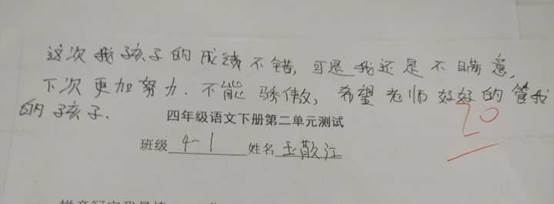 这次我孩子的成绩不错,可是我还是不瞒意,
下次更加努力.不能骄傲,希望老师好好的管我
的孩子.
20
四年级语文下册第二单元测试
班级 4-1 姓名 王歆江